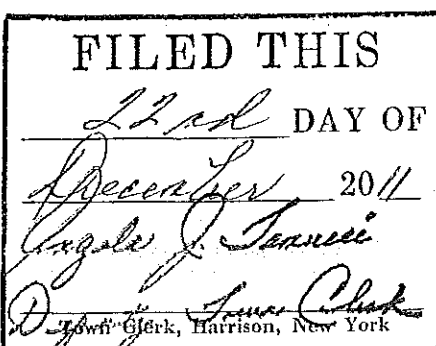 FILED THIS
22nd DAY OF
December 2011
Angela J.
Deputy Town Clerk
Town Clerk, Harrison, New York